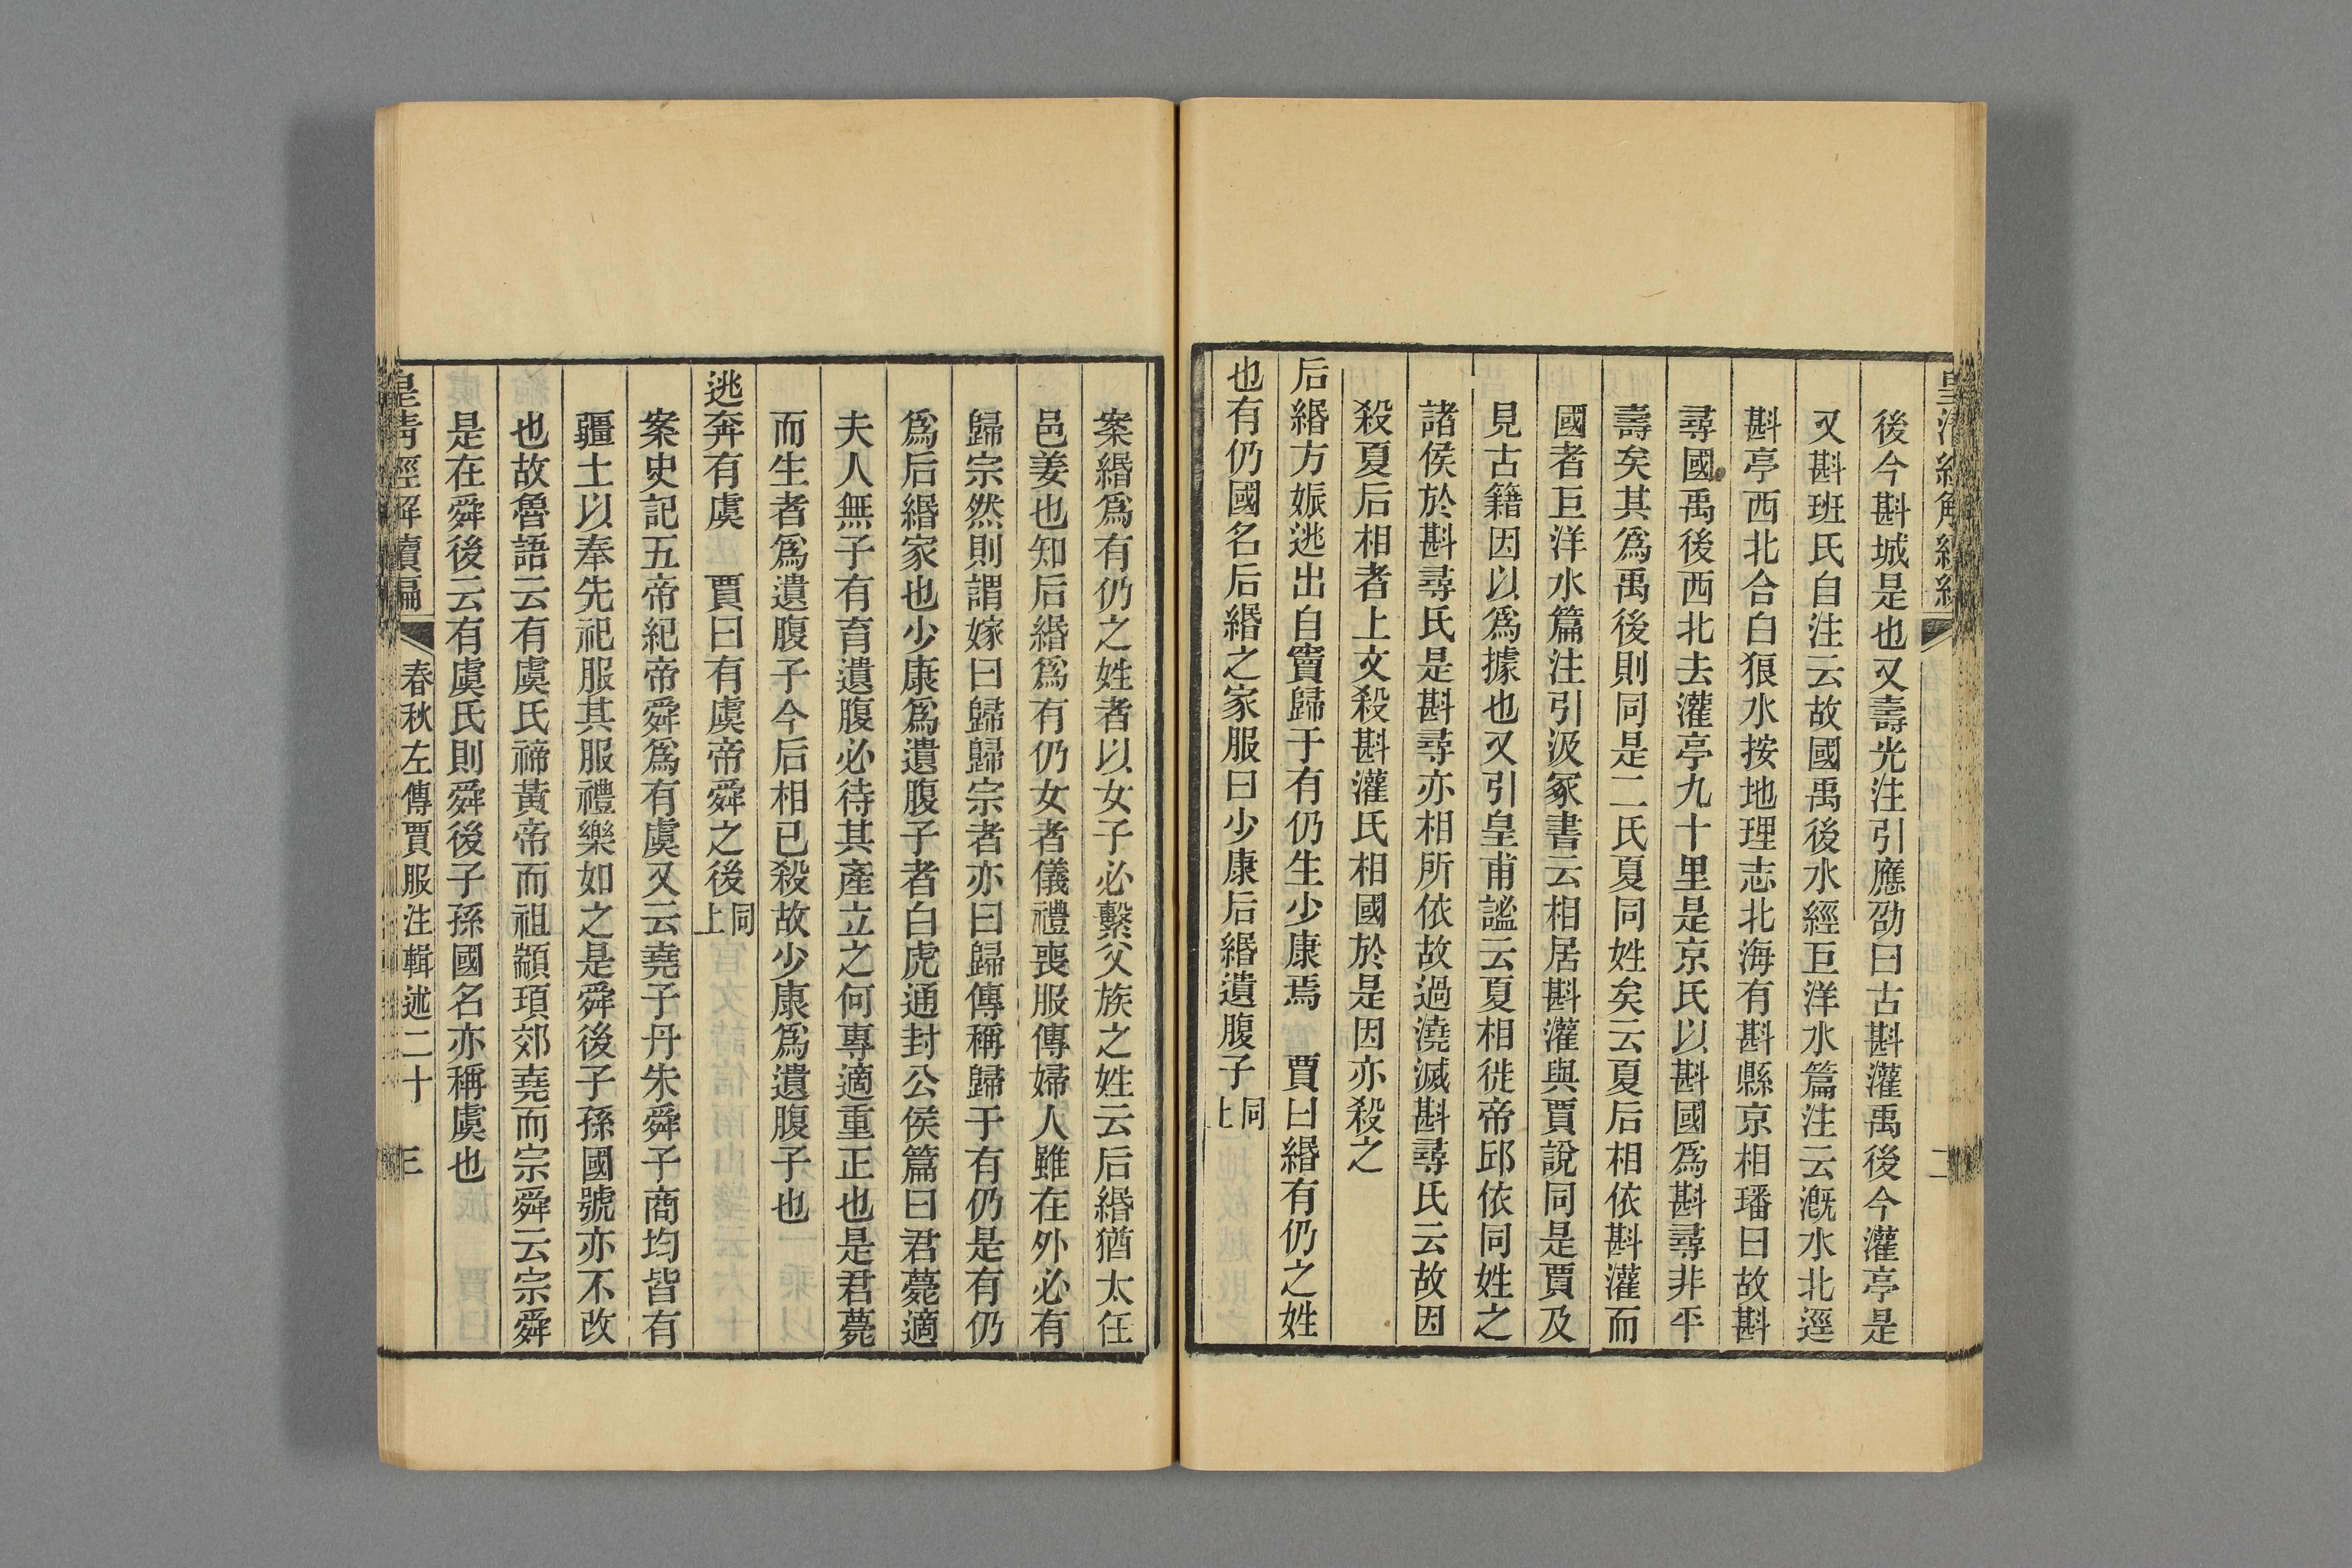 後今斟城是也又壽光注引應劭曰古斟灌禹後今灌亭是
又斟班氏自注云故國禹後水經巨洋水篇注云溉水北逕
斟亭西北合白狼水按地理志北海有斟縣京相璠曰故斟
尋國禹後西北去灌亭九十里是京氏以斟國爲斟尋非平
壽矣其爲禹後則同是二氏夏同姓矣云夏后相依斟灌而
國者巨洋水篇注引汲冢書云相居斟灌與賈說同是賈及
見古籍因以爲據也又引皇甫謐云夏相徙帝邱依同姓之
諸侯於斟尋氏是斟尋亦相所依故過澆滅斟尋氏云故因
殺夏后相者上文殺斟灌氏相國於是因亦殺之
后緡方娠逃出自竇歸于有仍生少康焉　賈曰緡有仍之姓
也有仍國名后緡之家服曰少康后緡遺腹子同上
案緡爲有仍之姓者以女子必繫父族之姓云后緡猶太任
邑姜也知后緡爲有仍女者儀禮喪服傳婦人雖在外必有
歸宗然則謂嫁曰歸歸宗者亦曰歸傳稱歸于有仍是有仍
爲后緡家也少康爲遺腹子者白虎通封公侯篇曰君薨適
夫人無子有育遺腹必待其產立之何專適重正也是君薨
而生者爲遺腹子今后相已殺故少康爲遺腹子也
逃奔有虞　賈曰有虞帝舜之後同上
案史記五帝紀帝舜爲有虞又云堯子丹朱舜子商均皆有
疆土以奉先祀服其服禮樂如之是舜後子孫國號亦不改
也故魯語云有虞氏禘黃帝而祖顓頊郊堯而宗舜云宗舜
是在舜後云有虞氏則舜後子孫國名亦稱虞也
皇清經解續編　春秋左傳賈服注輯述二十　三